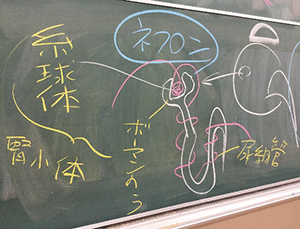 ネフロン
糸球体
腎小体
ボーマンのう
尿細管